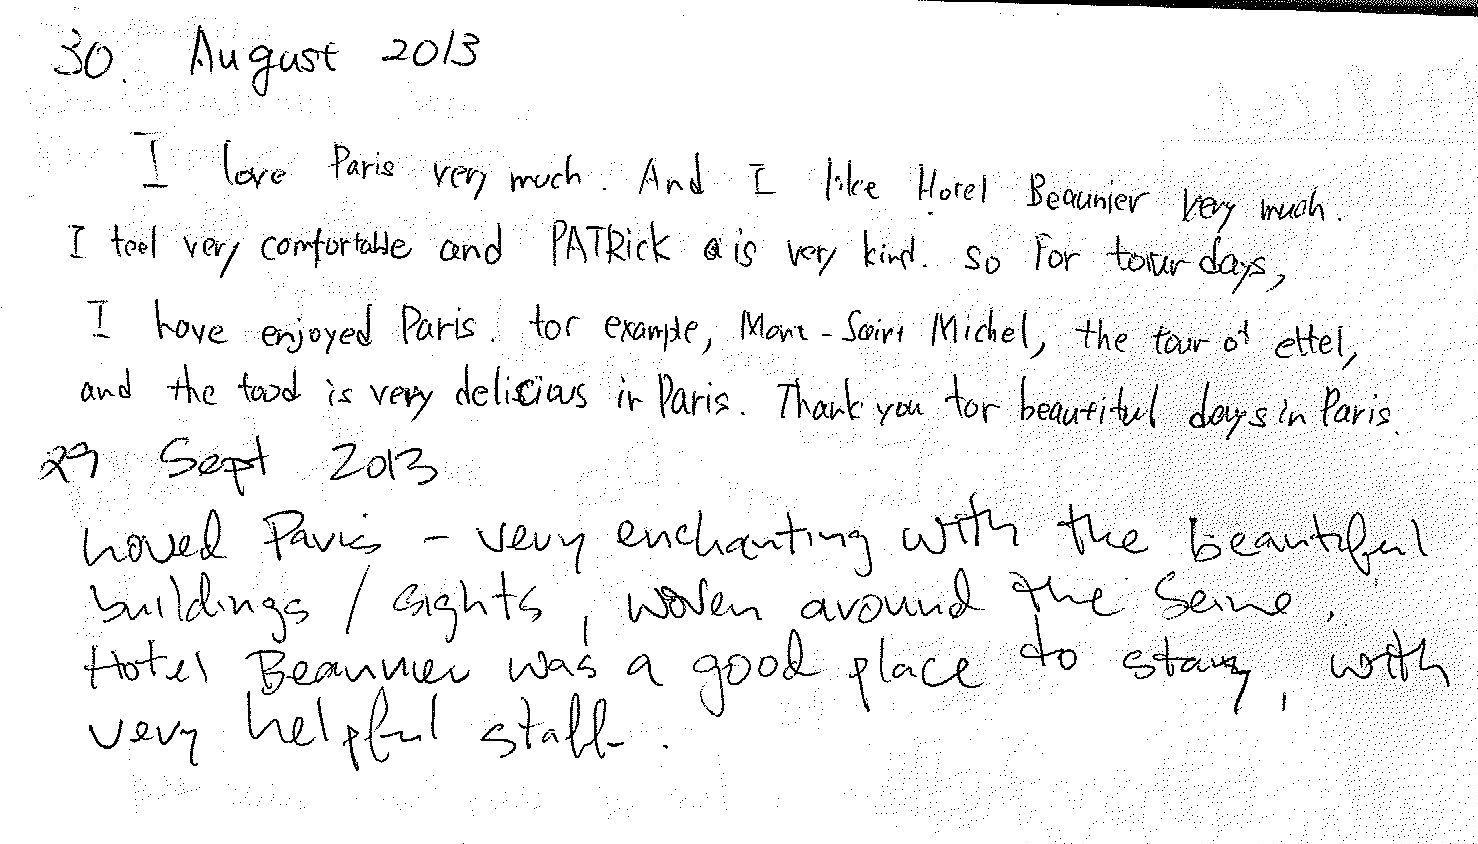 30. August 2013
I love Paris very much. And I like Hotel Beaunier very much.
I feel very comfortable and PATRick is very kind. so For four days,
I have enjoyed Paris. for example, Mont-Saint Michel, the tour of effel,
and the food is very delicious in Paris. Thank you for beautiful days in Paris.
29 Sept 2013
Loved Paris - very enchanting with the beautiful
buildings / sights, woven around the Seine.
Hotel Beaunier was a good place to stay, with
very helpful staff.